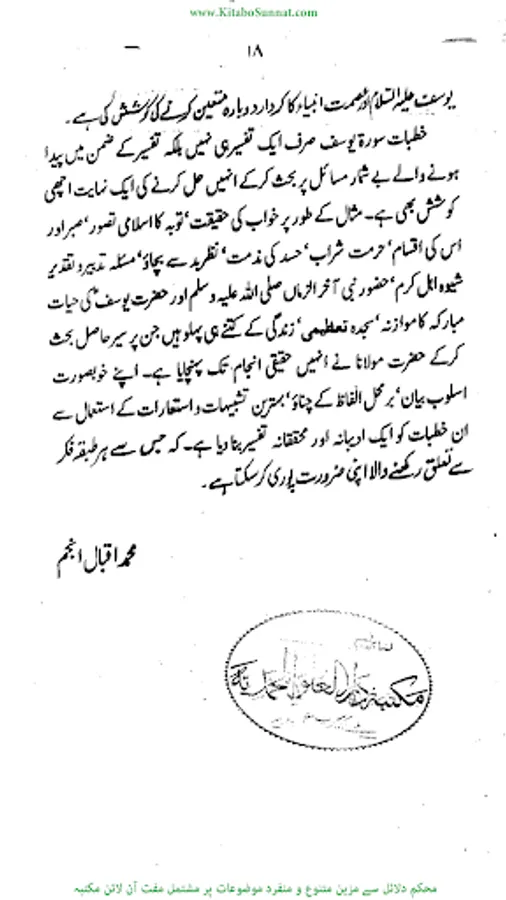 www.KitaboSunnat.com
۱۸
یوسف علیہ السلام اور عصمت انبیاء کا کردار دوبارہ متعین کرنے کی کوشش کی ہے۔
خطبات سورۃ یوسف صرف ایک تفسیر ہی نہیں بلکہ تفسیر کے ضمن میں پیدا
ہونے والے بے شمار مسائل پر بحث کر کے انہیں حل کرنے کی ایک نہایت اچھی
کوشش بھی ہے۔ مثال کے طور پر خواب کی حقیقت‘ توبہ کا اسلامی تصور‘ صبر اور
اس کی اقسام‘ حرمت شراب‘ حسد کی مذمت‘ نظر بد سے بچاؤ‘ مسئلہ تدبیر و تقدیر
شیوہ اہل کرم‘ حضور نبی آخر الزماں صلی اللہ علیہ وسلم اور حضرت یوسف کی حیات
مبارکہ کا موازنہ‘ سجدہ تعظیمی‘ زندگی کے کتنے ہی پہلو ہیں جن پر سیر حاصل بحث
کر کے حضرت مولانا نے انہیں حقیقی انجام تک پہنچایا ہے۔ اپنے خوبصورت
اسلوب بیان‘ بر محل الفاظ کے چناؤ‘ بہترین تشبیہات و استعارات کے استعمال سے
ان خطبات کو ایک ادیبانہ اور محققانہ تفسیر بنا دیا ہے۔ کہ جس سے ہر طبقہ فکر
سے تعلق رکھنے والا اپنی ضرورت پوری کر سکتا ہے۔
محمد اقبال انجم
مکتبہ دار العلوم
محکم دلائل سے مزین متنوع و منفرد موضوعات پر مشتمل مفت آن لائن مکتبہ